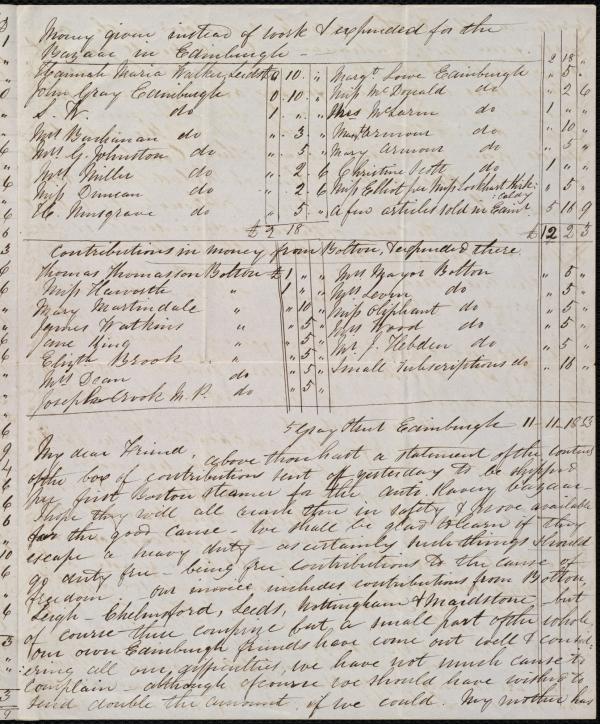 Money given instead of work & expended for the
Bazaar in Edinburgh —
2 18 "
Hannah Maria Walker, Leeds 0 10 "
John Gray Edinburgh 0 10 "
S. W. do 1 " "
Mrs Buchanan do " 3 "
Mrs G. Johnston do " 5 "
Mrs Miller do " 2 6
Miss Duncan do " 2 6
C. Musgrave do " 5 "
£2 18
Margt Lowe Edinburgh " 5 "
Miss McDonald do " 2 6
Mrs McLaren do 1 " "
Armour do " 10 "
Mary Armour do " 5 "
Christine Scott do 1 " "
Miss Elliot per Miss Lockhart Kirk=
=caldy " 5 "
A few articles sold in Edinr 5 16 9
£ 12 2 3
Contributions in money from Bolton, & expended there
Thomas Thomasson Bolton £ 1 " "
Miss Haworth " 1 " "
Mary Martindale " " 10 "
James Watkins " " 5 "
Jane King " " 5 "
Elizth Brook " " 5 "
Mrs Dean do " 5 "
Joseph Crook M.P. do " 5 "
Mrs Mayor Bolton " 5 "
Mrs do " 5 "
Miss Oliphant do " 5 "
Mrs Wood do " 5 "
Mr J. Hebden do " 5 "
Small subscriptions do " 16 "
5 Gray Street Edinburgh 11 - 11 - 1853
My dear Friend, above thou hast a statement of the contents
of the box of contributions sent off yesterday to be shipped
by first Boston Steamer for the Anti Slavery bazaar
I hope they will all reach thee in safety & prove available
for the good cause — We shall be glad to learn if they
escape a heavy duty — as certainly such things should
go duty free — being free contributions to the cause of
freedom — our invoice includes contributions from Bolton,
Leigh — Chelmsford, Leeds, Nottingham & Maidstone — but
of course these comprize but a small part of the whole,
our own Edinburgh friends have come out well & consid=
=ering all our difficulties, we have not much cause to
complain — although of course we should have wished to
send double the amount, if we could. My mother has